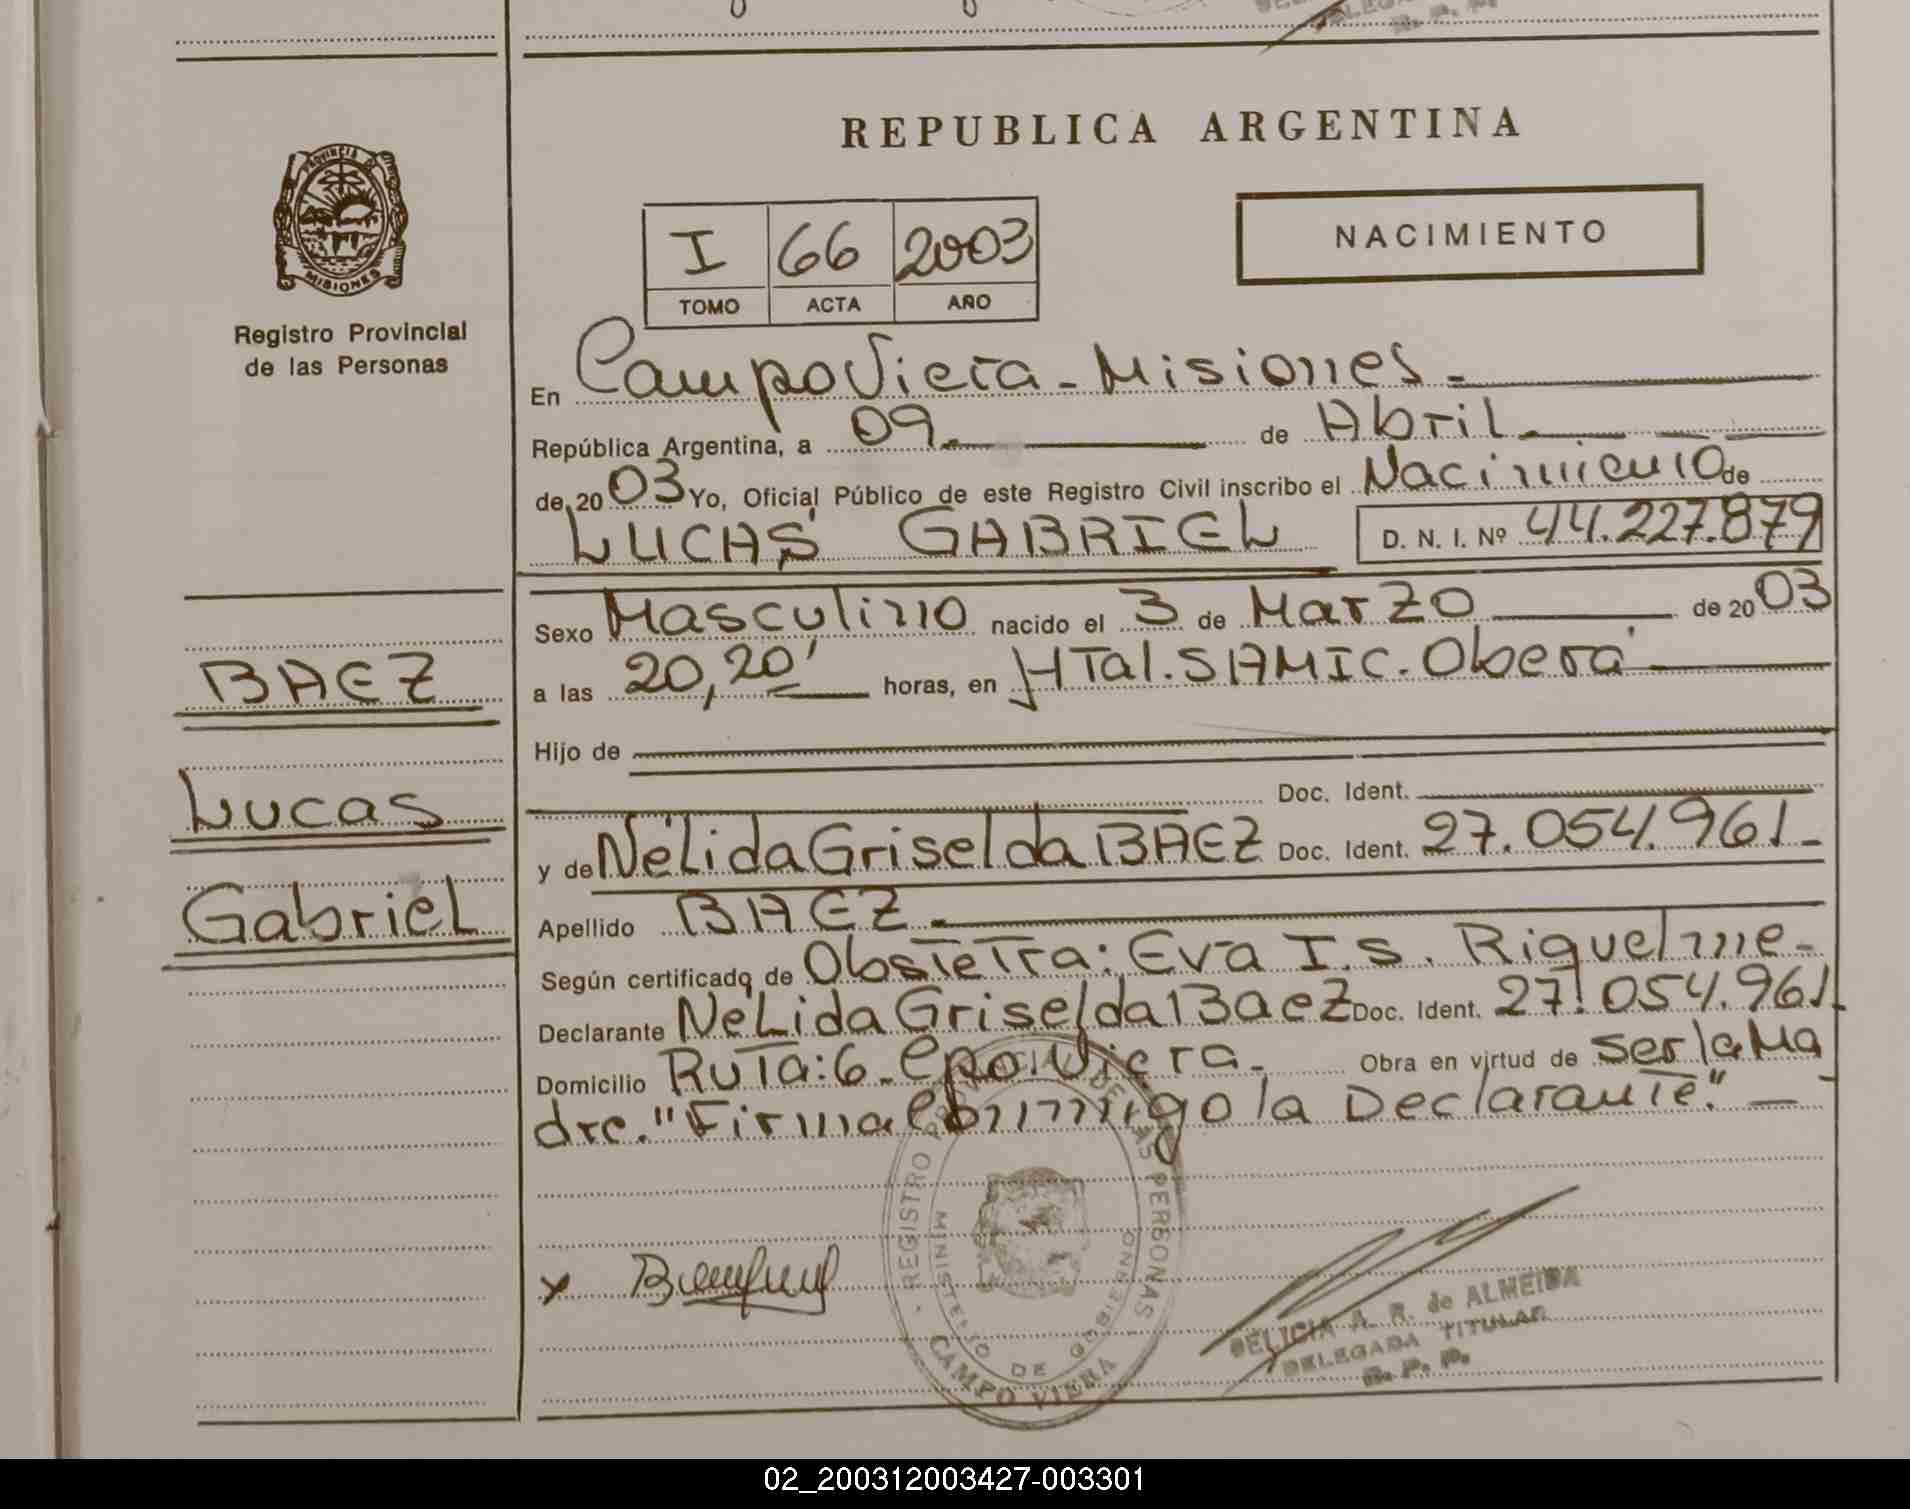 REPUBLICA ARGENTINA
PROVINCIA DE
MISIONES
Registro Provincial
de las Personas
I 66 2003
TOMO ACTA AÑO
NACIMIENTO
En Campo Viera - Misiones -
República Argentina, a 09 de Abril
de 20 03 Yo, Oficial Público de este Registro Civil inscribo el Nacimiento de
LUCAS GABRIEL D. N. I. Nº 44.227.879
Sexo Masculino nacido el 3 de Marzo de 20 03
a las 20,20' horas, en HTal. SAMIC. Oberá
Hijo de
Doc. Ident.
y de Nélida Griselda BAEZ Doc. Ident. 27.054.961-
Apellido BAEZ-
Según certificado de Obstetra: Eva I.S. Riquelme-
Declarante Nélida Griselda Baez Doc. Ident. 27.054.961-
Domicilio Ruta: 6 - Cpo. Viera- Obra en virtud de ser la Ma
dre. "Firma conmigo la Declarante". -
BAEZ
Lucas
Gabriel
x
REGISTRO PROVINCIAL DE LAS PERSONAS
MINISTERIO DE GOBIERNO
CAMPO VIERA
DELICIA A. R. de ALMEIDA
DELEGADA TITULAR
R. P. P.
02_200312003427-003301